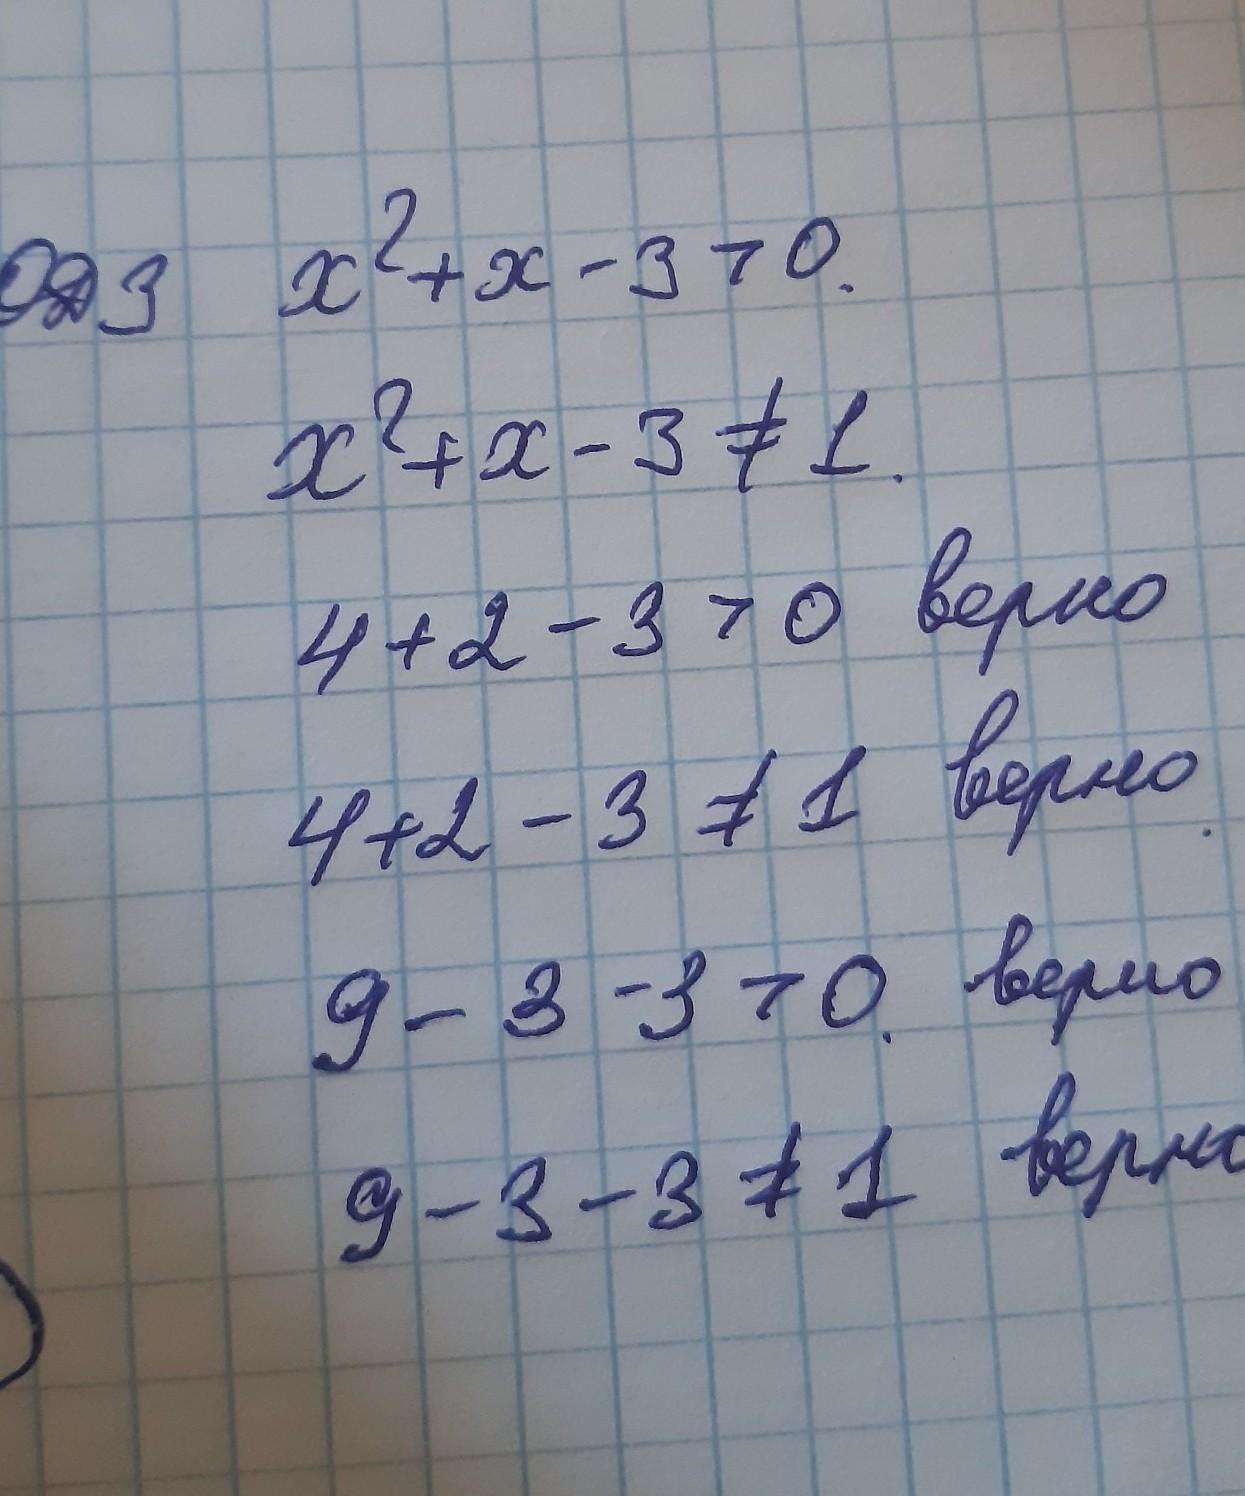 ОДЗ x² + x - 3 > 0.
x² + x - 3 ≠ 1.
4 + 2 - 3 > 0 верно
4 + 2 - 3 ≠ 1 верно.
9 - 3 - 3 > 0. верно
9 - 3 - 3 ≠ 1 верно